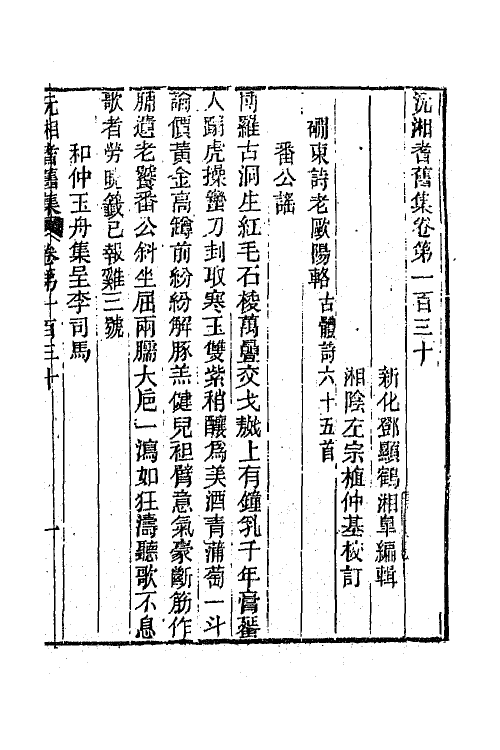 沅湘耆舊集卷第一百三十
新化鄧顯鶴湘皐編輯
湘陰左宗植仲基校訂
磵東詩老歐陽輅古體詩六十五首
番公謠
博羅古洞生紅毛石棱萬疊交戈鏚上有鐘乳千年膏蜑
人蹋虎操蠻刀刲取寒玉雙紫稍釀為美酒青蒲萄一斗
論價黃金高罇前紛紛解豚羔健兒袒臂意氣豪斷筋作
膈遺老饕番公斜坐屈兩臑大巵一瀉如狂濤聽歌不息
歌者勞曉籤已報雞三號
和仲玉舟集呈李司馬
沅湘耆舊集 卷第一百三十 一